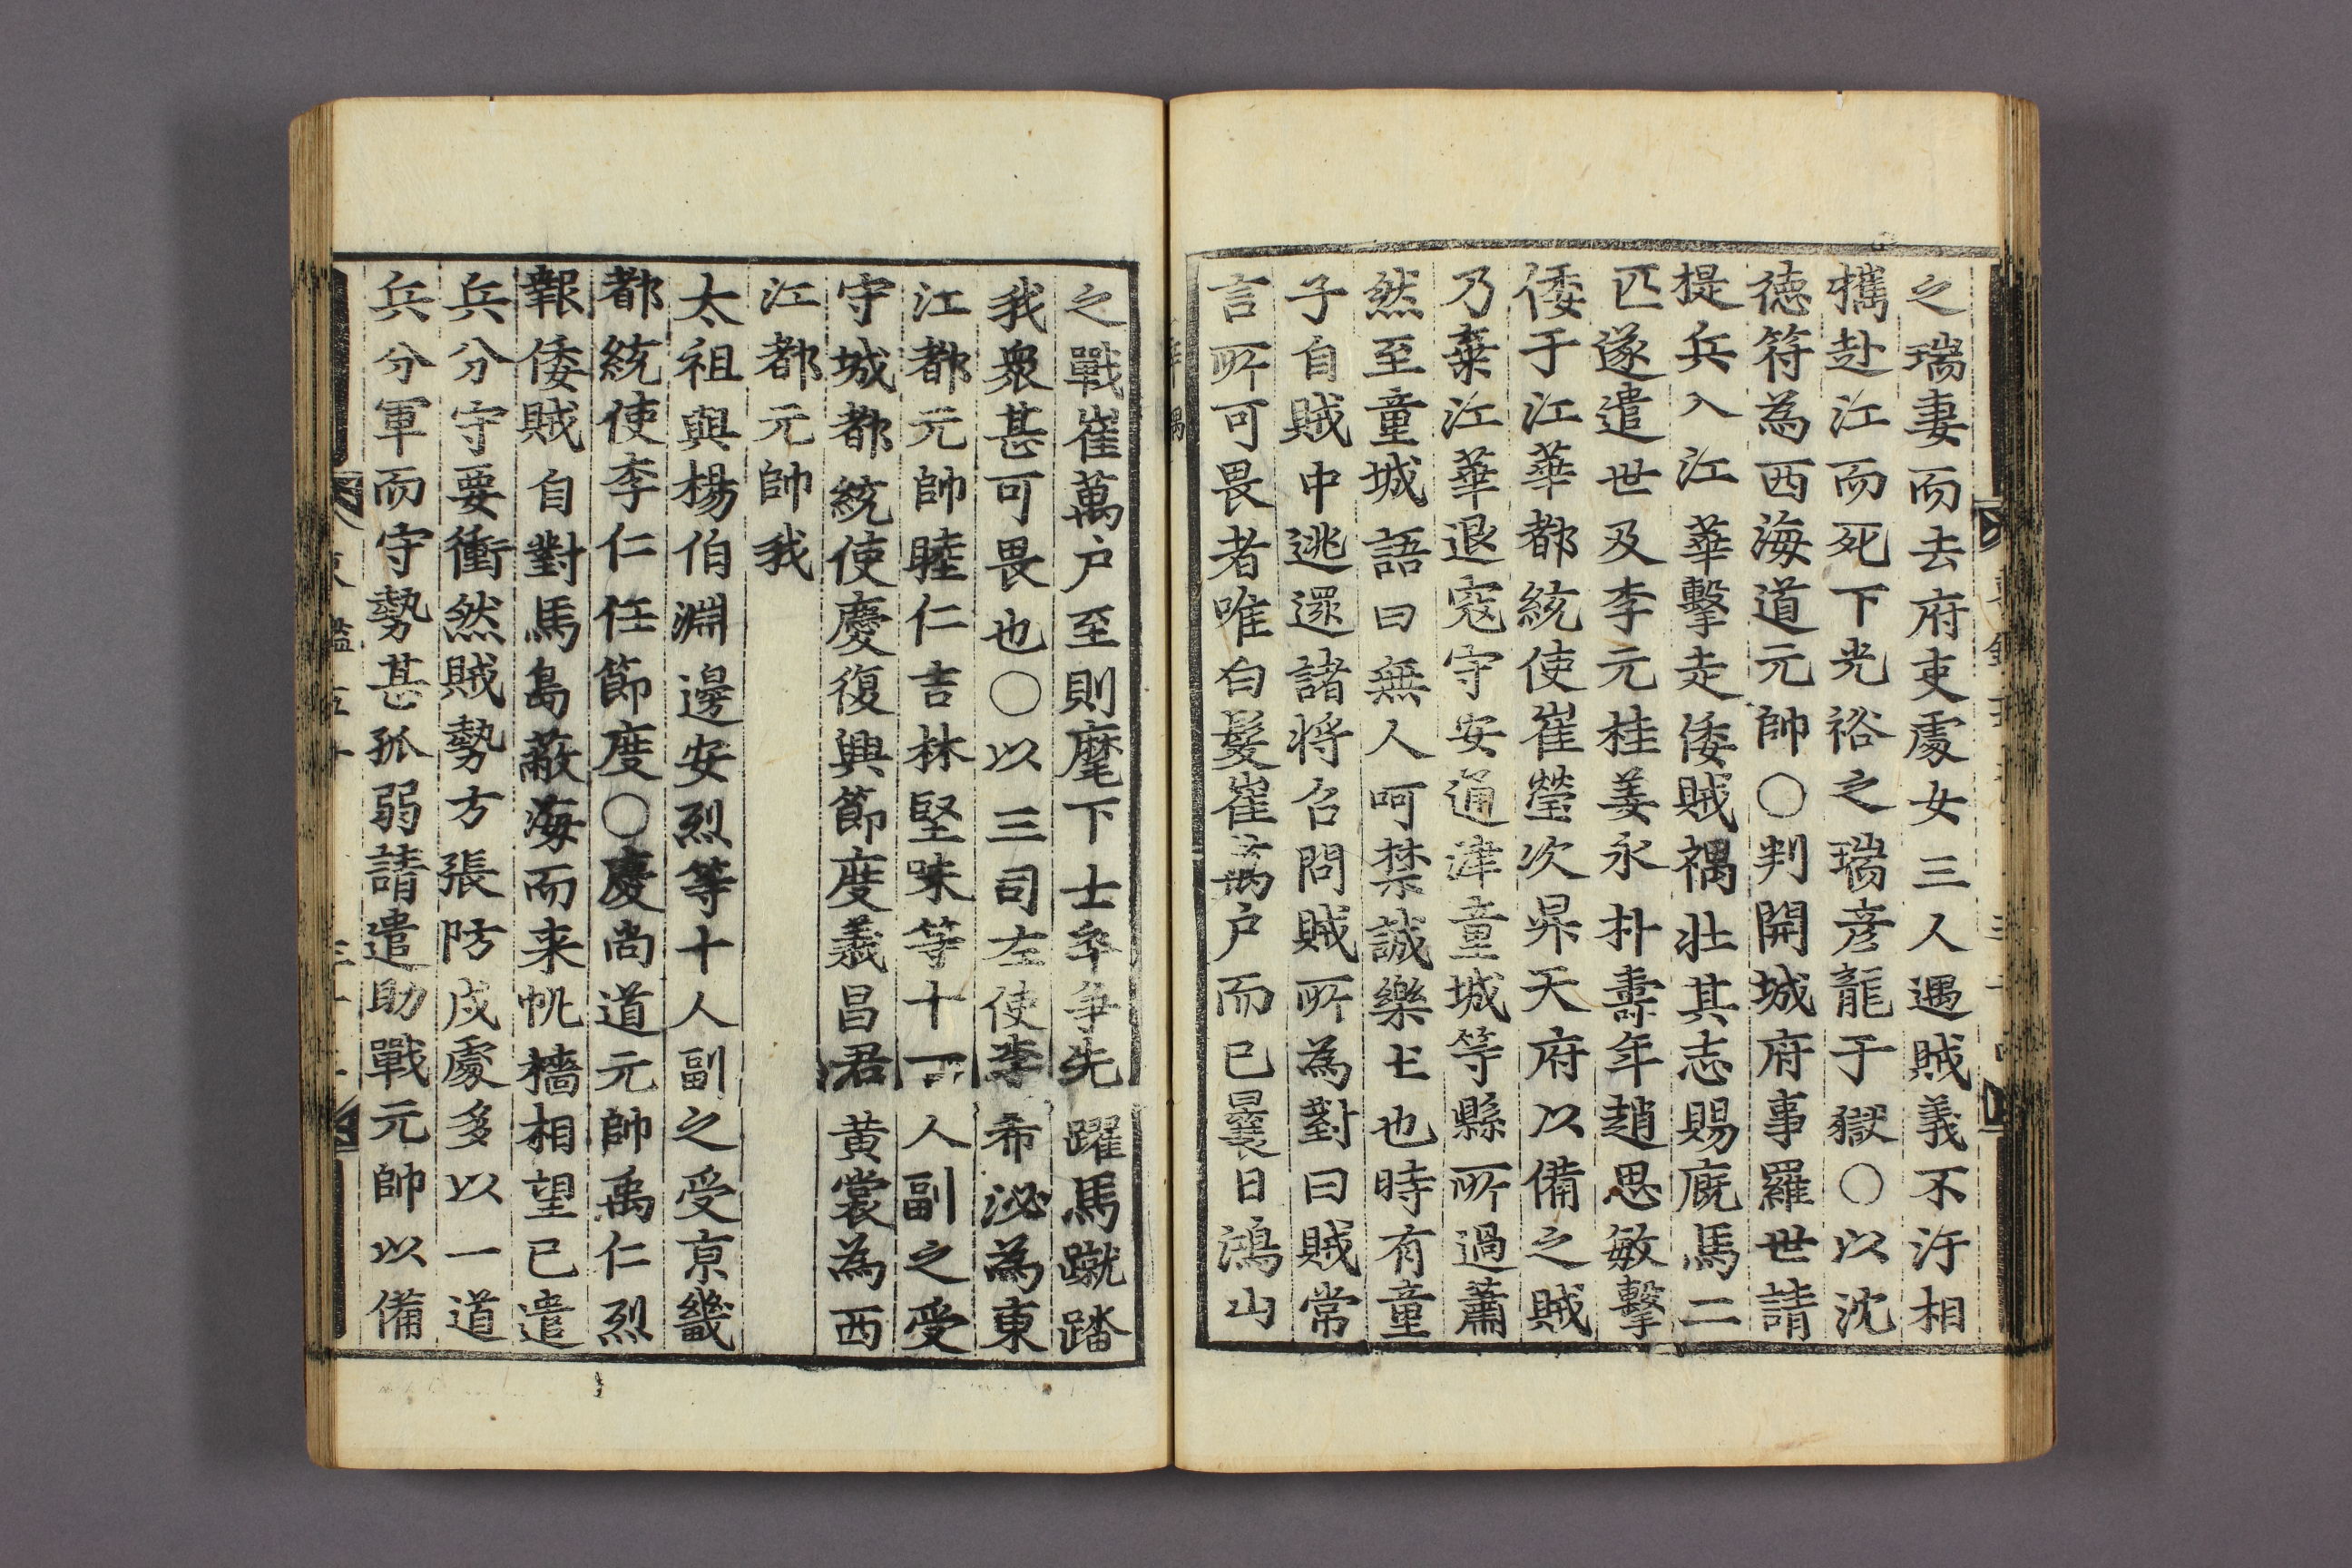 之瑞妻而去府吏處女三人遇賊義不汙相
攜赴江而死下光裕之瑞彦龍于獄○以沈
德符為西海道元帥○判開城府事羅世請
提兵入江華擊走倭賊禑壯其志賜廐馬二
匹遂遣世及李元桂姜永朴壽年趙思敏擊
倭于江華都統使崔瑩次昇天府以備之賊
乃棄江華退寇守安通津童城等縣所過蕭
然至童城語曰無人呵禁誠樂土也時有童
子自賊中逃還諸將召問賊所為對曰賊常
言所可畏者唯白髮崔萬户而已曩日鴻山
之戰崔萬户至則麾下士卒争先躍馬蹴踏
我衆甚可畏也○以三司左使李希泌為東
江都元帥睦仁吉林堅味等十一人副之受
守城都統使慶復興節度義昌君黄裳為西
江都元帥我
太祖與楊伯淵邊安烈等十人副之受亰畿
都統使李仁任節度○慶尚道元帥禹仁烈
報倭賊自對馬島蔽海而来帆檣相望已遣
兵分守要衝然賊勢方張防戍處多以一道
兵分軍而守勢甚孤弱請遣助戰元帥以備